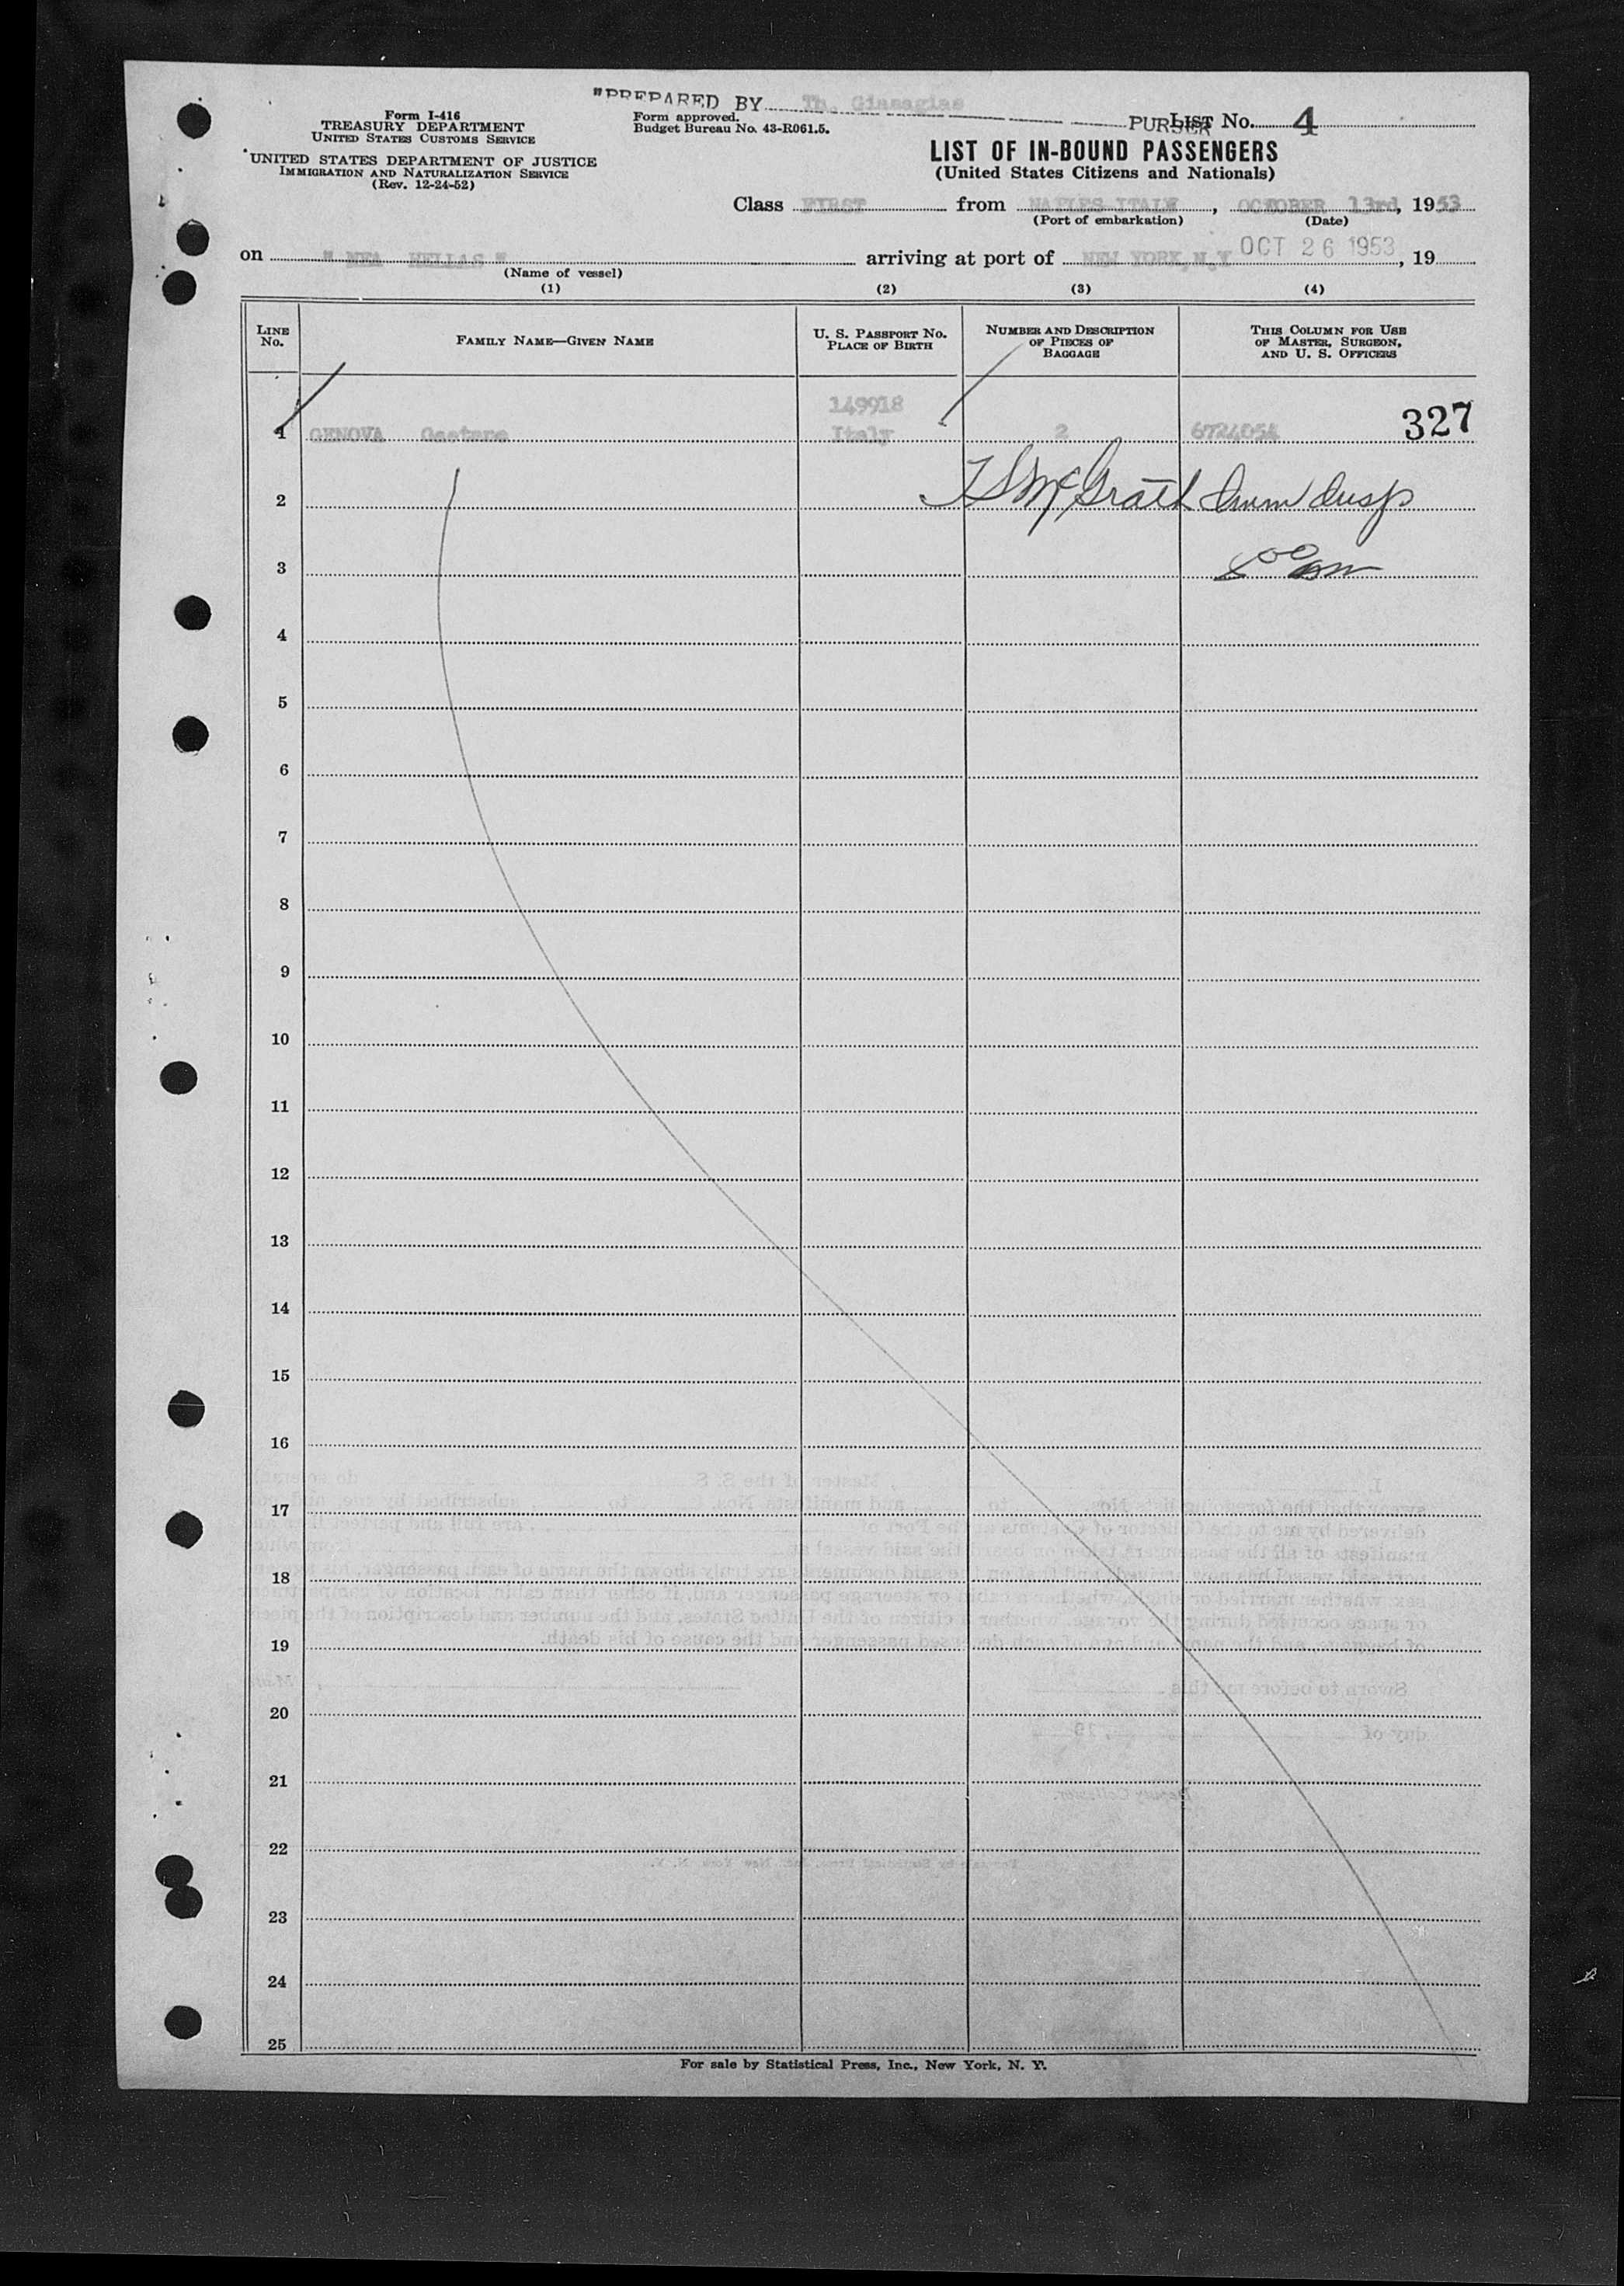 "PREPARED BY Th. Giasaglas PURSER
Form I-416
TREASURY DEPARTMENT
UNITED STATES CUSTOMS SERVICE
UNITED STATES DEPARTMENT OF JUSTICE
IMMIGRATION AND NATURALIZATION SERVICE
(Rev. 12-24-52)
Form approved.
Budget Bureau No. 43-R061.5.
LIST No. 4
LIST OF IN-BOUND PASSENGERS
(United States Citizens and Nationals)
Class FIRST from NAPLES ITALY, OCTOBER 13rd, 1953
(Port of embarkation) (Date)
on " NEA HELLAS " arriving at port of NEW YORK, N.Y OCT 26 1953, 19
(Name of vessel)
(1) (2) (3) (4)
LINE No. FAMILY NAME—GIVEN NAME U. S. PASSPORT No. PLACE OF BIRTH NUMBER AND DESCRIPTION OF PIECES OF BAGGAGE THIS COLUMN FOR USE OF MASTER, SURGEON, AND U. S. OFFICERS
149918
1 GENOVA Gaetano Italy 2 6724054 327
2 McGrath Imm Insp
3
4
5
6
7
8
9
10
11
12
13
14
15
16
17
18
19
20
21
22
23
24
25
For sale by Statistical Press, Inc., New York, N. Y.